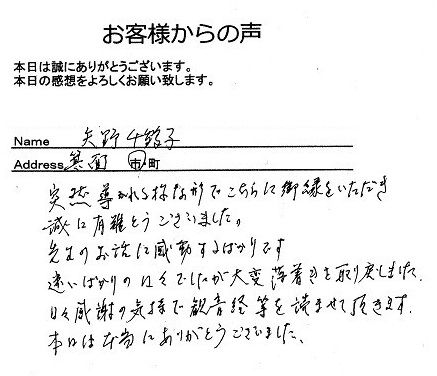 お客様からの声
本日は誠にありがとうございます。
本日の感想をよろしくお願い致します。
Name 矢野千鶴子
Address 箕面 市・町
突然導かれる様な形でこちらに御縁をいただき
誠に有難とうございました。
先生のお話に感動するばかりです
遠いばかりの日々でしたが大変落着きを取り戻しました。
日々感謝の気持で観音経等を読ませて頂きます。
本日は本当にありがとうございました。